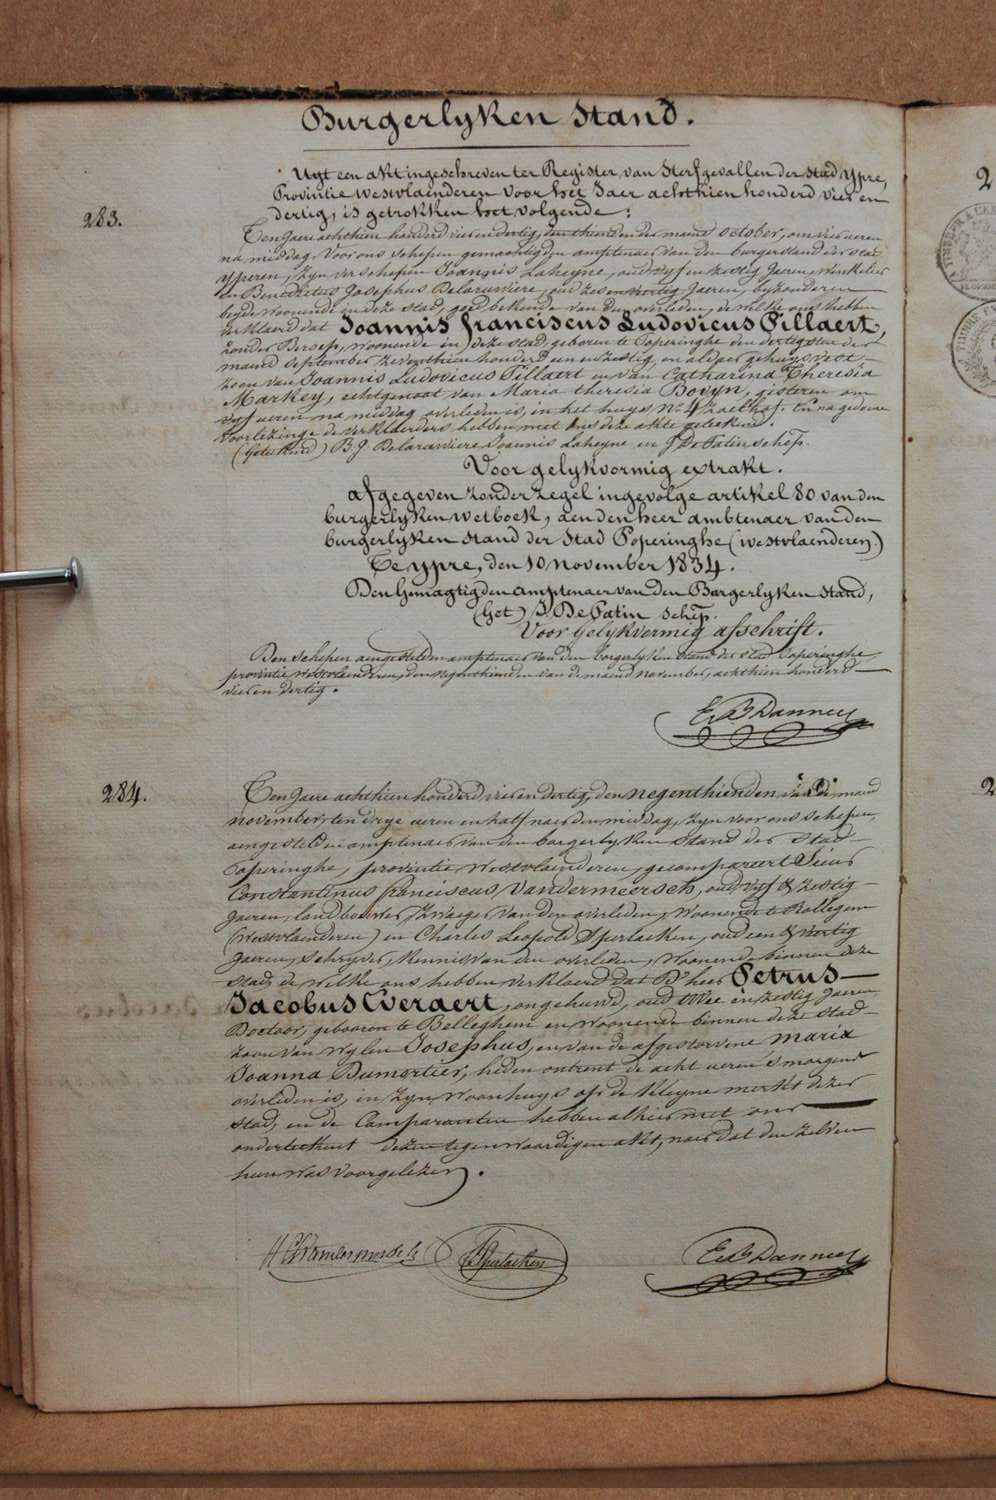 Burgerlyken Stand.
Uyt een akt ingeschreven ter Register van Sterfgevallen der Stad Ypre,
283.
Provintie Westvlaenderen voor het Jaer achthien honderd vier en
dertig, is getrokken het volgende:
Ten Jaere achthien honderd vier en dertig, den thienden der maend October, om vier ueren
na middag, Voor ons Schepen gemachtigden amptenaer van den burgerstand der stad
Yperen, zyn verschenen Joannis Laheyne, oud vyf en zestig Jaeren, Winkelier
en Benedictus Josephus Delaruwiere, oud zes en veertig Jaeren, byzonderen
beyde woonende in deze stad, goed bekende van den overleden, de welke ons hebben
verklaerd dat Joannis franciscus Ludovicus Pillaert,
zonder Beroep, woonende in deze stad, geboren te Poperinghe den dertigsten der
maend September zeventhien honderd een en zestig, en aldaer gehuysvest,
zoon van Joannis Ludovicus Pillaert en van Catharina Theresia
Markey, echtgenoot van Maria theresia Bovyn, gisteren om
vyf ueren na middag overleden is, in het huys N° 4 Zaelhof. En na gedaene
voorlezinge de verklaerders hebben met ons deze akte geteekend.
(Geteekend) B. J. Delaruwiere, Joannis Laheyne en J DeFatin schep.
Voor gelykvormig extrakt.
afgegeven zonder zegel ingevolge artikel 80 van den
burgerlyken wetboek, aen den heer ambtenaer van den
burgerlyken stand der Stad Poperinghe (Westvlaenderen.)
Te ypre, den 10 november 1834.
Den Gemagtigden amptenaer van den Burgerlyken Stand,
(Get) J. DeFatin schep.
Voor gelykvormig afschrift.
Den schepen aengestelden amptenaer van den borgerlyken stand der stad Poperinghe,
provintie Westvlaenderen, den negenthienden van de maend november, achthien honderd
vier en dertig.
E. B Danneey
284.
Ten Jaere achthien honderd, vier en dertig, den negenthienden van de maend
november, ten drye ueren en half naer den middag, zyn voor ons schepen,
aengestelden amptenaer van den borgerlyken stand der stad
Poperinghe, provintie Westvlaenderen, gecompareert Sieur
Constantinus franciscus Vandermeersch, oud vyf & zestig
Jaeren, landbouwer, Zwaeger van den overleden, Woonende te Rolleger
(Westvlaenderen) en Charles Leopold Sperlaeken, oud een & veertig
Jaeren, Schryver, kennis van den overleden, woonende binnen deze
stad, de welke ons hebben verklaerd dat D'heer Petrus
Jacobus Everaert, ongehuwd, oud twee en zestig Jaeren
Doctoor, gebooren te Belleghem en woonende binnen deze stad
zoon van Wylen Josephus, en van de afgestorvene maria
Joanna Dumortier, heden ontrent de acht ueren 's morgens
overleden is, in zyn woonhuys op de kleyne merkt dezer
stad, en de Comparanten hebben alhier met ons
onderteekent dezen tegenwoordigen akt, naer dat den zelven
hun was voorgelezen.
Vandermeersch
Sperlaeken
E. B Danneey